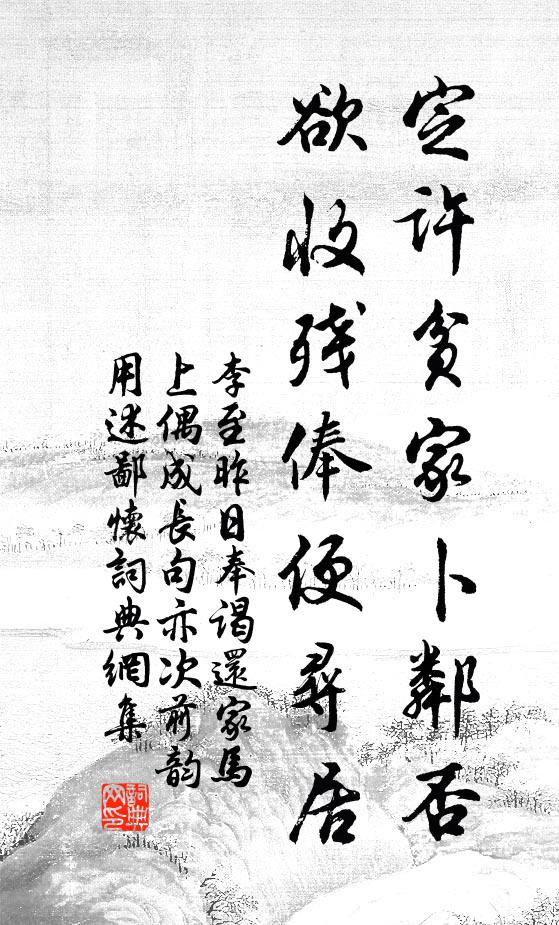 定許貧家卜鄰否
欲收殘俸便尋居
李至昨日奉謁還家馬
上偶成長句亦次前韵
用述鄙懷詞典網集